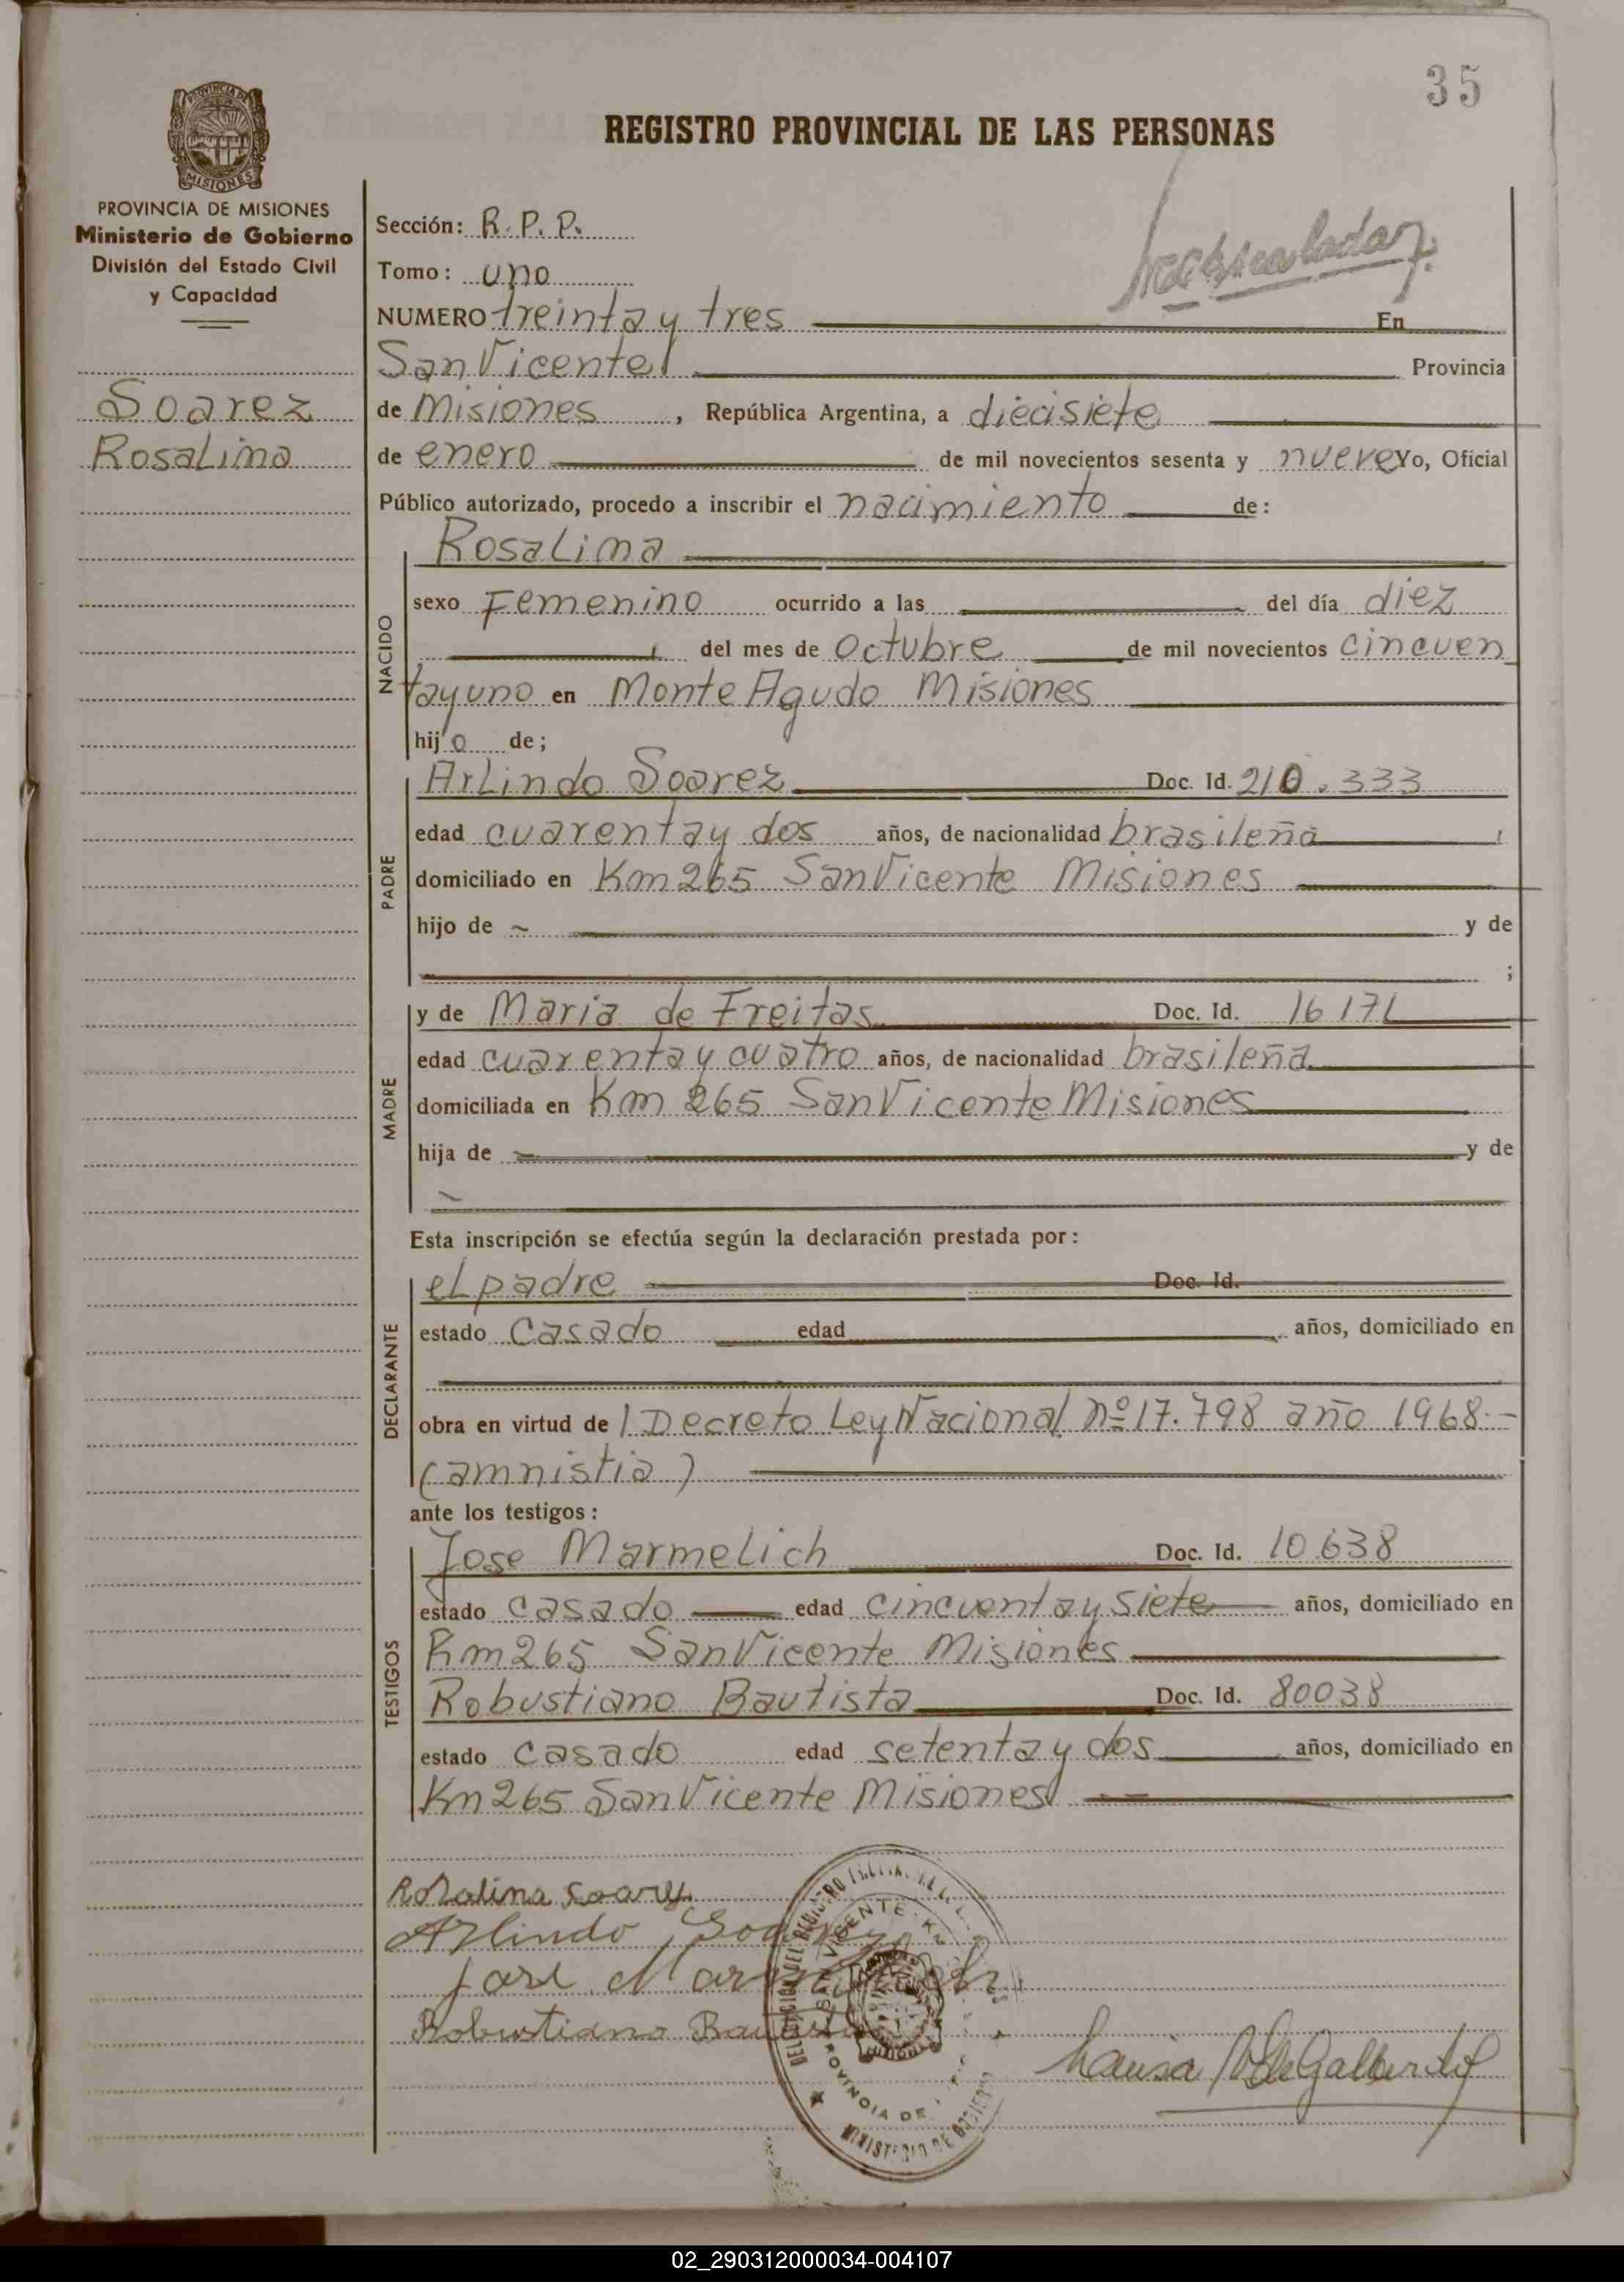 35
REGISTRO PROVINCIAL DE LAS PERSONAS
PROVINCIA DE MISIONES
Ministerio de Gobierno
División del Estado Civil
y Capacidad
Soarez
Rosalina
Sección: R. P. P.
Tomo: uno
NUMERO treinta y tres En
San Vicente Provincia
de Misiones, República Argentina, a diecisiete
de enero de mil novecientos sesenta y nueve Yo, Oficial
Público autorizado, procedo a inscribir el nacimiento de:
NACIDO
Rosalina
sexo Femenino ocurrido a las del día diez
del mes de Octubre de mil novecientos cincuen
tayuno en Monte Agudo Misiones
hijo de;
PADRE
Arlindo Soarez Doc. Id. 210.333
edad cuarentay dos años, de nacionalidad brasileña
domiciliado en Km 265 San Vicente Misiones
hijo de y de
;
MADRE
y de Maria de Freitas Doc. Id. 16171
edad cuarentay cuatro años, de nacionalidad brasileña
domiciliada en Km 265 San Vicente Misiones
hija de y de
Esta inscripción se efectúa según la declaración prestada por:
DECLARANTE
el padre Doc. Id.
estado Casado edad años, domiciliado en
obra en virtud de l Decreto Ley Nacional nº 17.798 año 1968.-
(amnistia)
ante los testigos:
TESTIGOS
Jose Marmelich Doc. Id. 10.638
estado casado edad cincuentay siete años, domiciliado en
Km 265 San Vicente Misiones
Robustiano Bautista Doc. Id. 80038
estado casado edad setentay dos años, domiciliado en
Km 265 San Vicente Misiones
Rosalina Soarez
Arlindo Soarez
Jose Marmelich
Robustiano Bautista
02_290312000034-004107